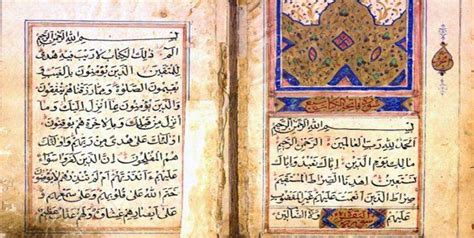 سورة فاتحة الكتاب
بسم الله الرحمن الرحيم
الحمد لله رب العالمين الرحمن الرحيم
ملك يوم الدين اياك نعبد واياك
نستعين اهدنا الصراط المستقيم
صراط الذين انعمت عليهم غير المغضوب
عليهم ولا الضالين
بسم الله الرحمن الرحيم
الم ذلك الكتاب لا ريب فيه هدى
للمتقين الذين يؤمنون بالغيب
ويقيمون الصلوة ومما رزقناهم ينفقون
والذين يؤمنون بما انزل اليك وما
انزل من قبلك وبالاخرة هم يوقنون
اولئك على هدى من ربهم واولئك
هم المفلحون ان الذين كفروا سواء
عليهم ءانذرتهم ام لم تنذرهم لا يؤمنون
ختم الله على قلوبهم وعلى سمعهم
وعلى ابصارهم غشاوة ولهم عذاب